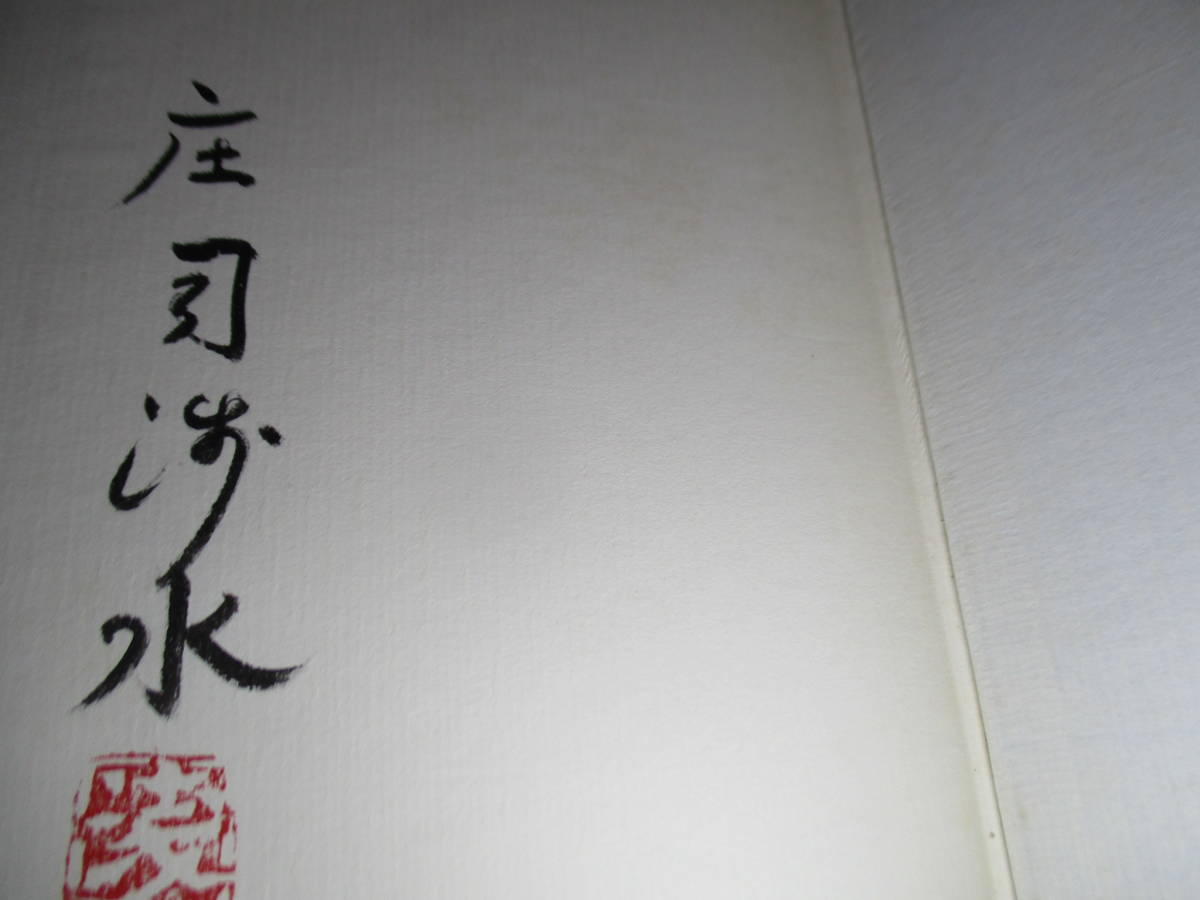 庄司浅水